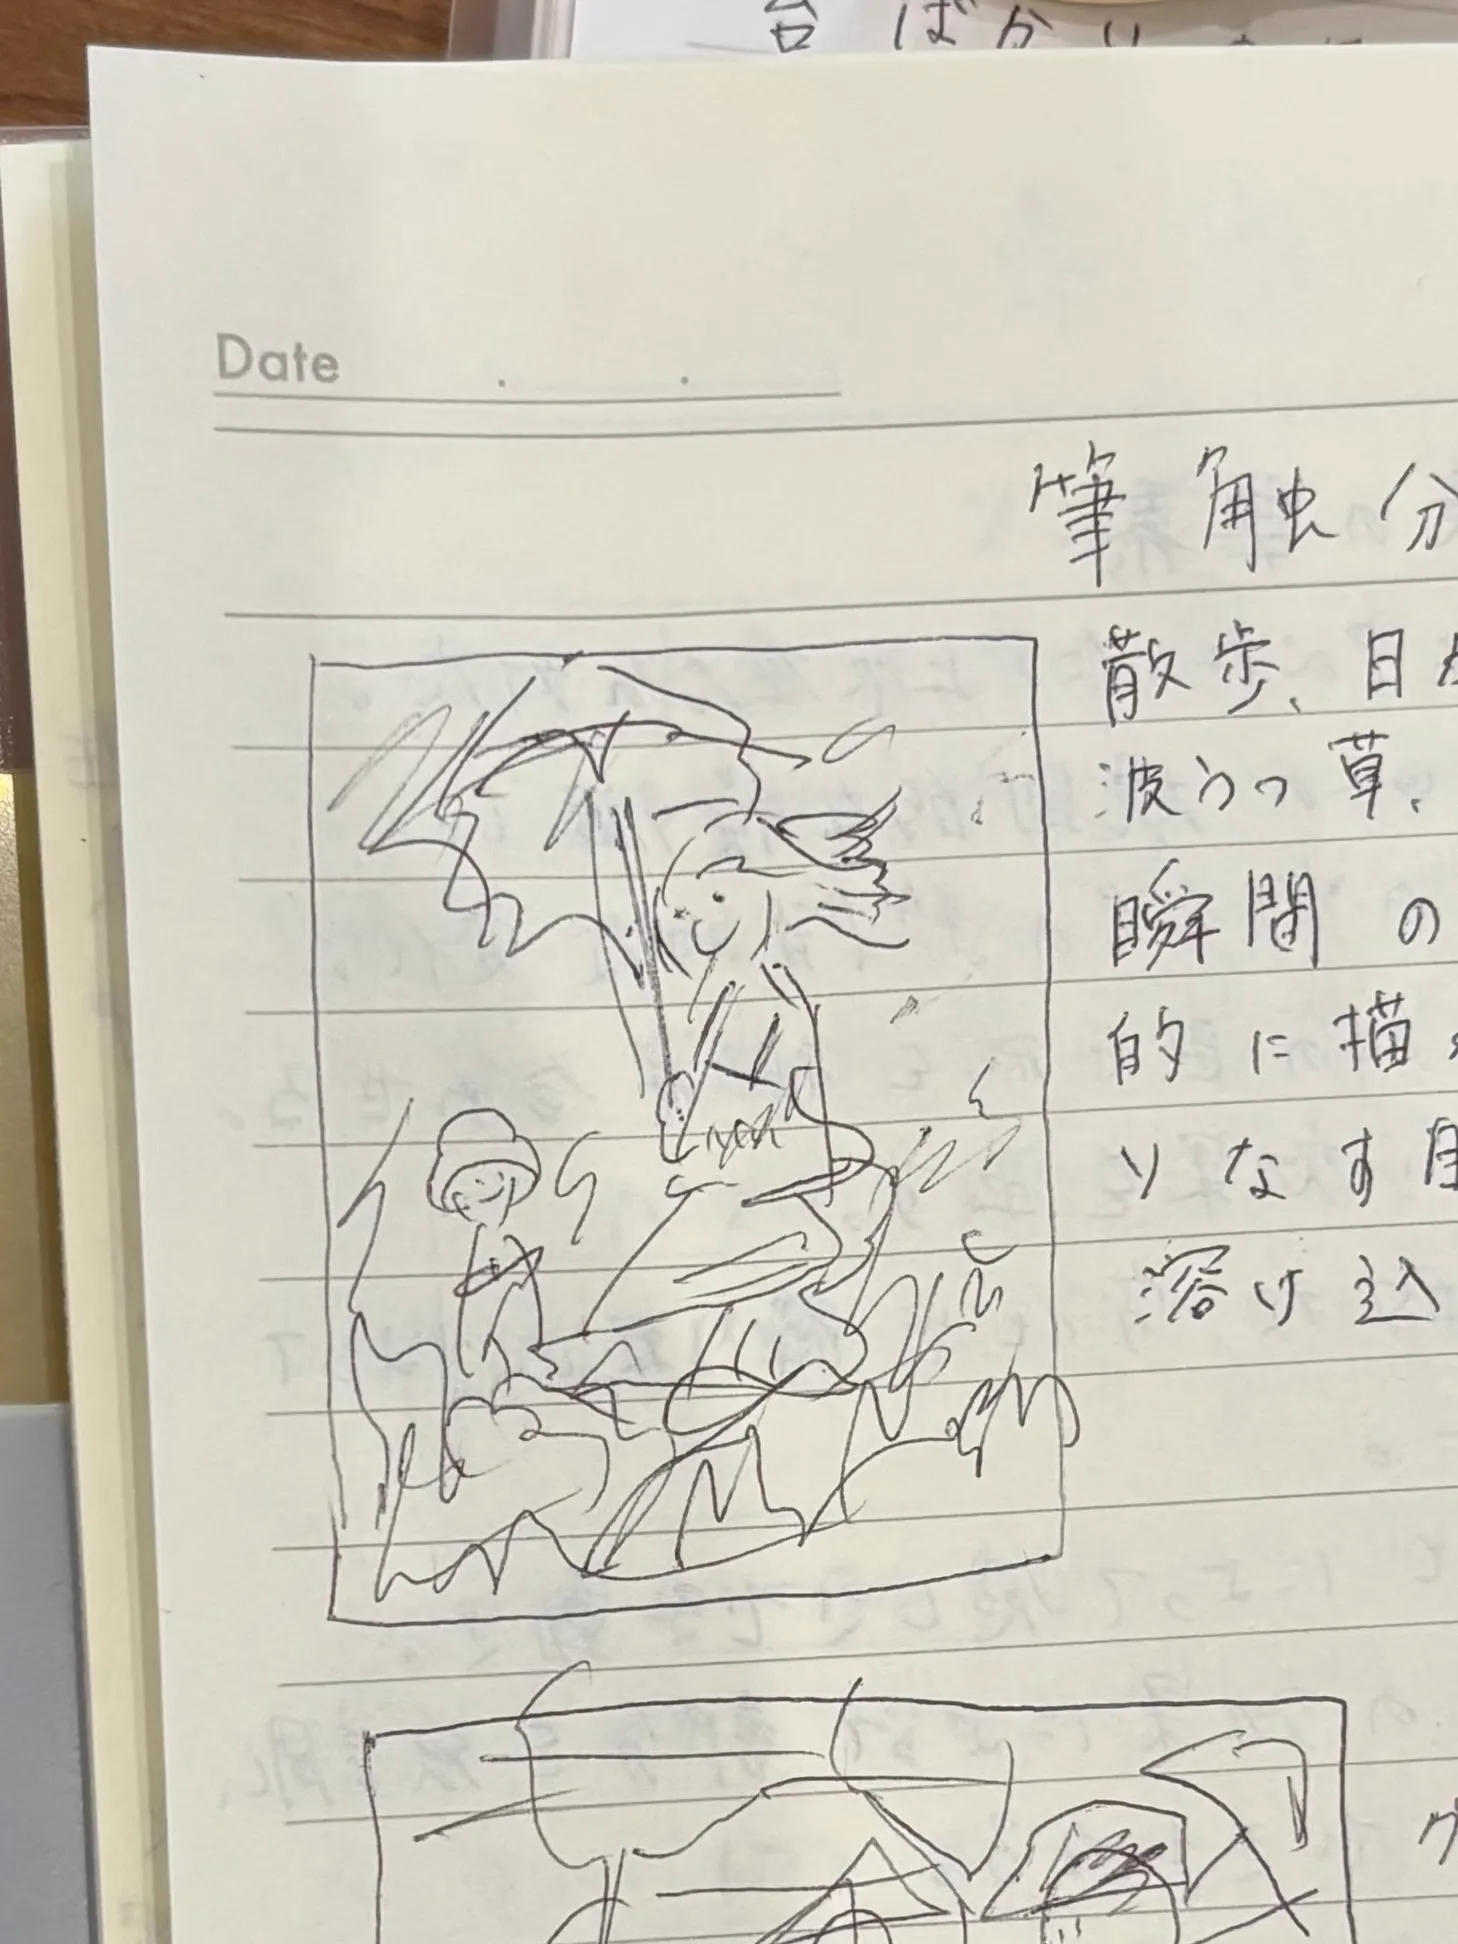 台ばかり
Date
筆触分
散歩、日
波うつ草、
瞬間の
的に描
りなす
溶け込